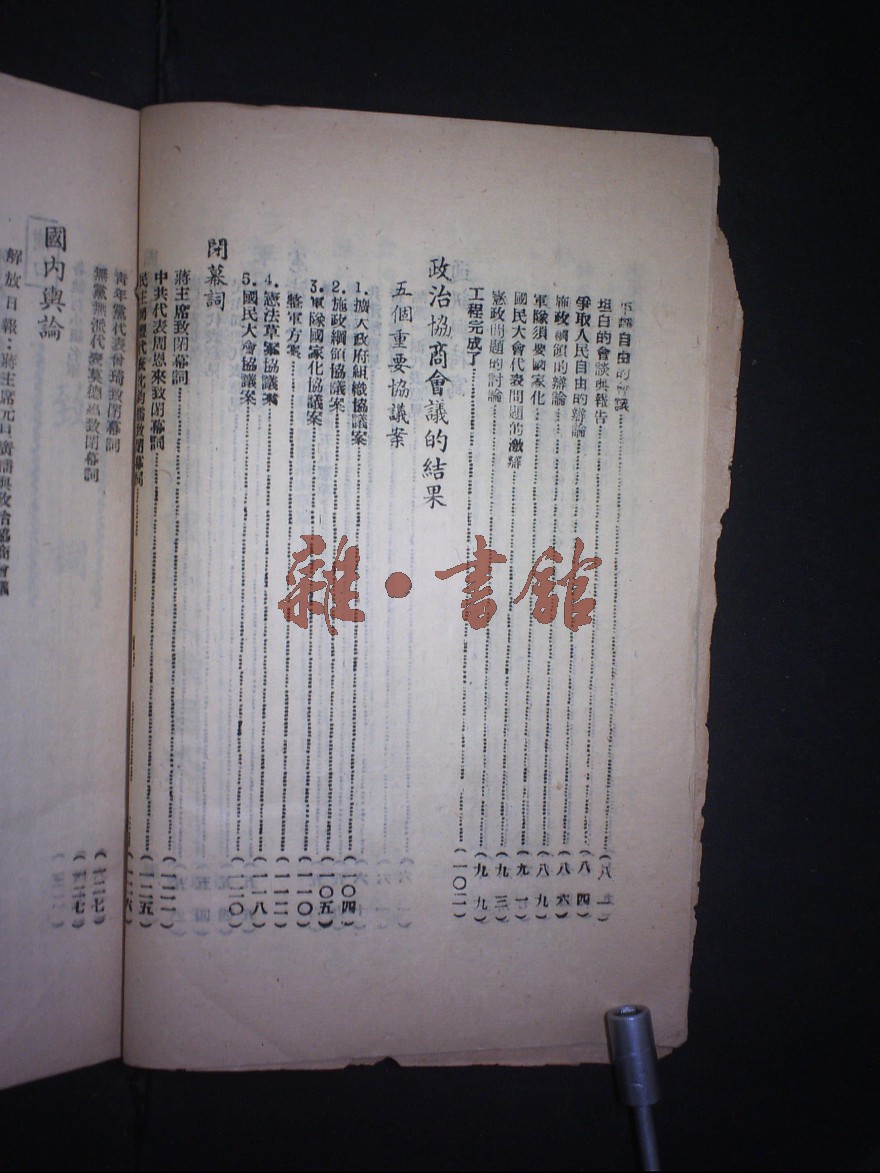 自由的會議
坦白的會談與報告……(八一)
爭取人民自由的辯論……(八四)
施政綱領的辯論……(八六)
軍隊須要國家化……(八九)
國民大會代表問題的激辯……(九一)
憲政問題的討論……(九三)
工程完成了……(九九)
政治協商會議的結果……(一〇二)
五個重要協議案
1.擴大政府組織協議案……(一〇四)
2.施政綱領協議案……(一〇五)
3.軍隊國家化協議案……(一一〇)
整軍方案……(一一二)
4.憲法草案協議案……(一一八)
5.國民大會協議案……(一二〇)
閉幕詞
蔣主席致閉幕詞……(一二二)
中共代表周恩來致閉幕詞……(一二五)
民主同盟代表致閉幕詞……(一二六)
青年黨代表曾琦致閉幕詞……(一二七)
無黨無派代表莫德惠致閉幕詞
國內輿論
解放日報：蔣主席元旦廣播與政治協商會議
雜·書館